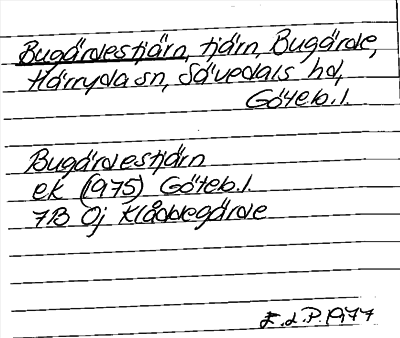 Bugärdestjärn, tjärn, Bugärde,
Härryda sn, Sävedals hd,
Göteb. l.
Bugärdestjärn
ek (1975) Göteb. l.
7B 0j Klåddegärde
E.d.P. 1977